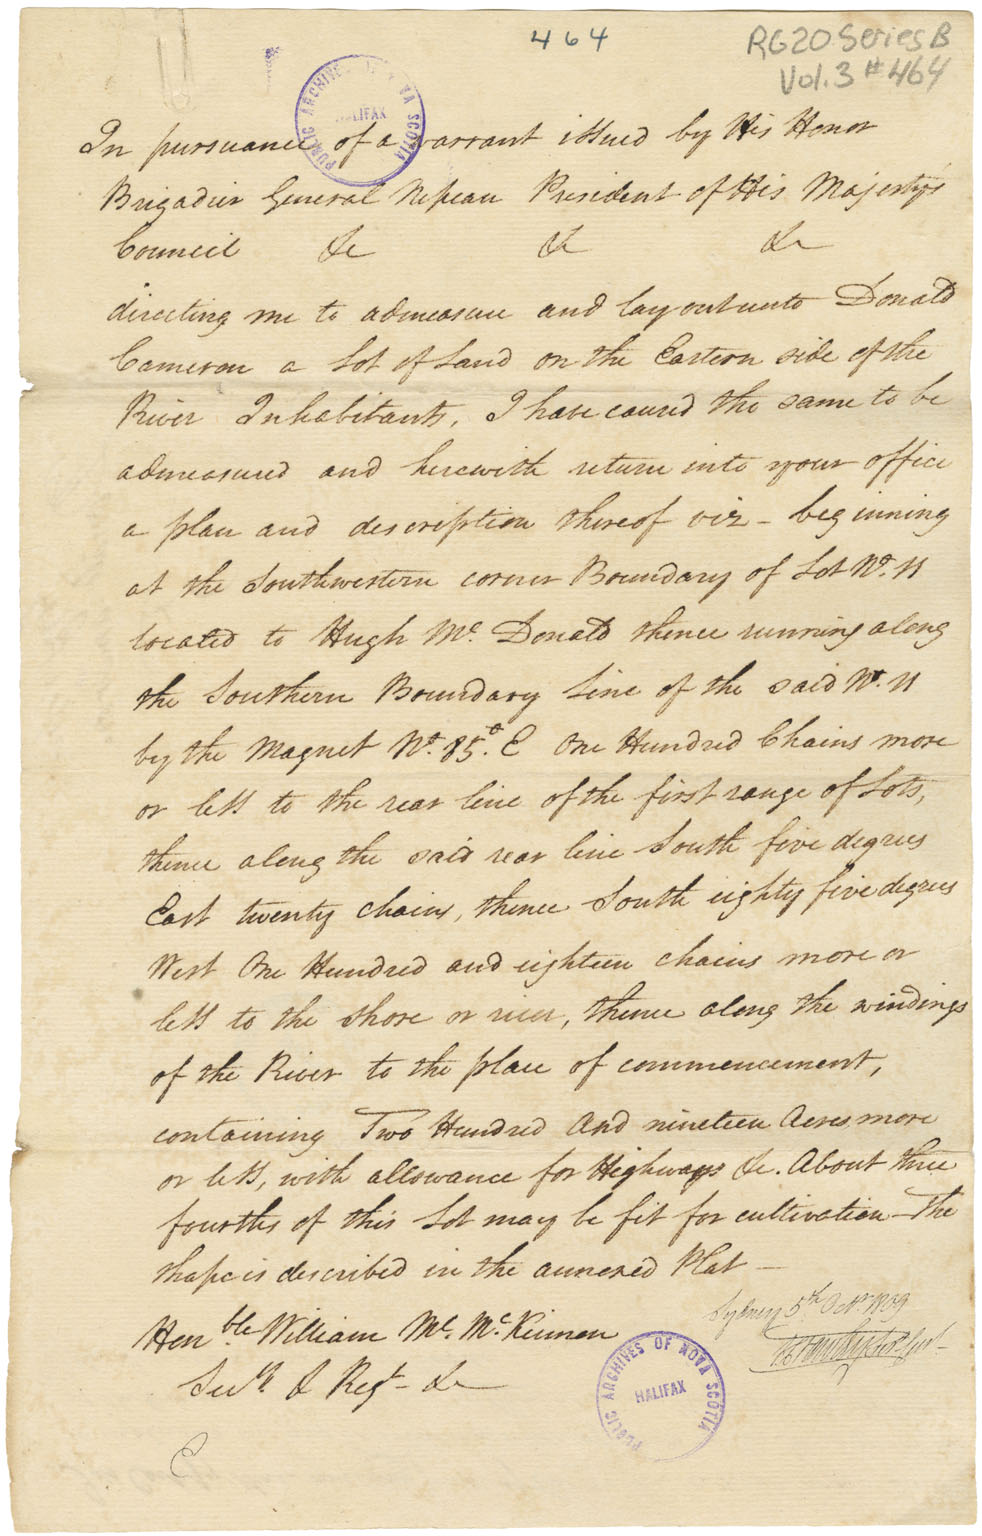 464
RG20 Series B
Vol. 3 #464
PUBLIC ARCHIVES OF NOVA SCOTIA
HALIFAX
In pursuance of a warrant issued by His Honor
Brigadier General Nepean President of His Majestys
Council &c &c &c
directing me to admeasure and lay out unto Donald
Cameron a Lot of Land on the Eastern side of the
River Inhabitants, I have caused the same to be
admeasured and herewith return into your office
a plan and description thereof viz - beginning
at the Southwestern corner Boundary of Lot No. 11
located to Hugh Mc. Donald thence running along
the Southern Boundary Line of the said No. 11
by the Magnet No. 85.° E One Hundred Chains more
or less to the rear line of the first range of Lots,
thence along the said rear line South five degrees
East twenty chains, thence South eighty five degrees
West One Hundred and eighteen chains more or
less to the shore or river, thence along the windings
of the River to the place of commencement,
containing Two Hundred And nineteen Acres more
or less, with allowance for Highways &c. About three
fourths of this Lot may be fit for cultivation - The
shape is described in the annexed Plat -
Sydney 5th Octr. 1809
Honble William Mc. McKinnen
Secy. & Regt - &c
PUBLIC ARCHIVES OF NOVA SCOTIA
HALIFAX